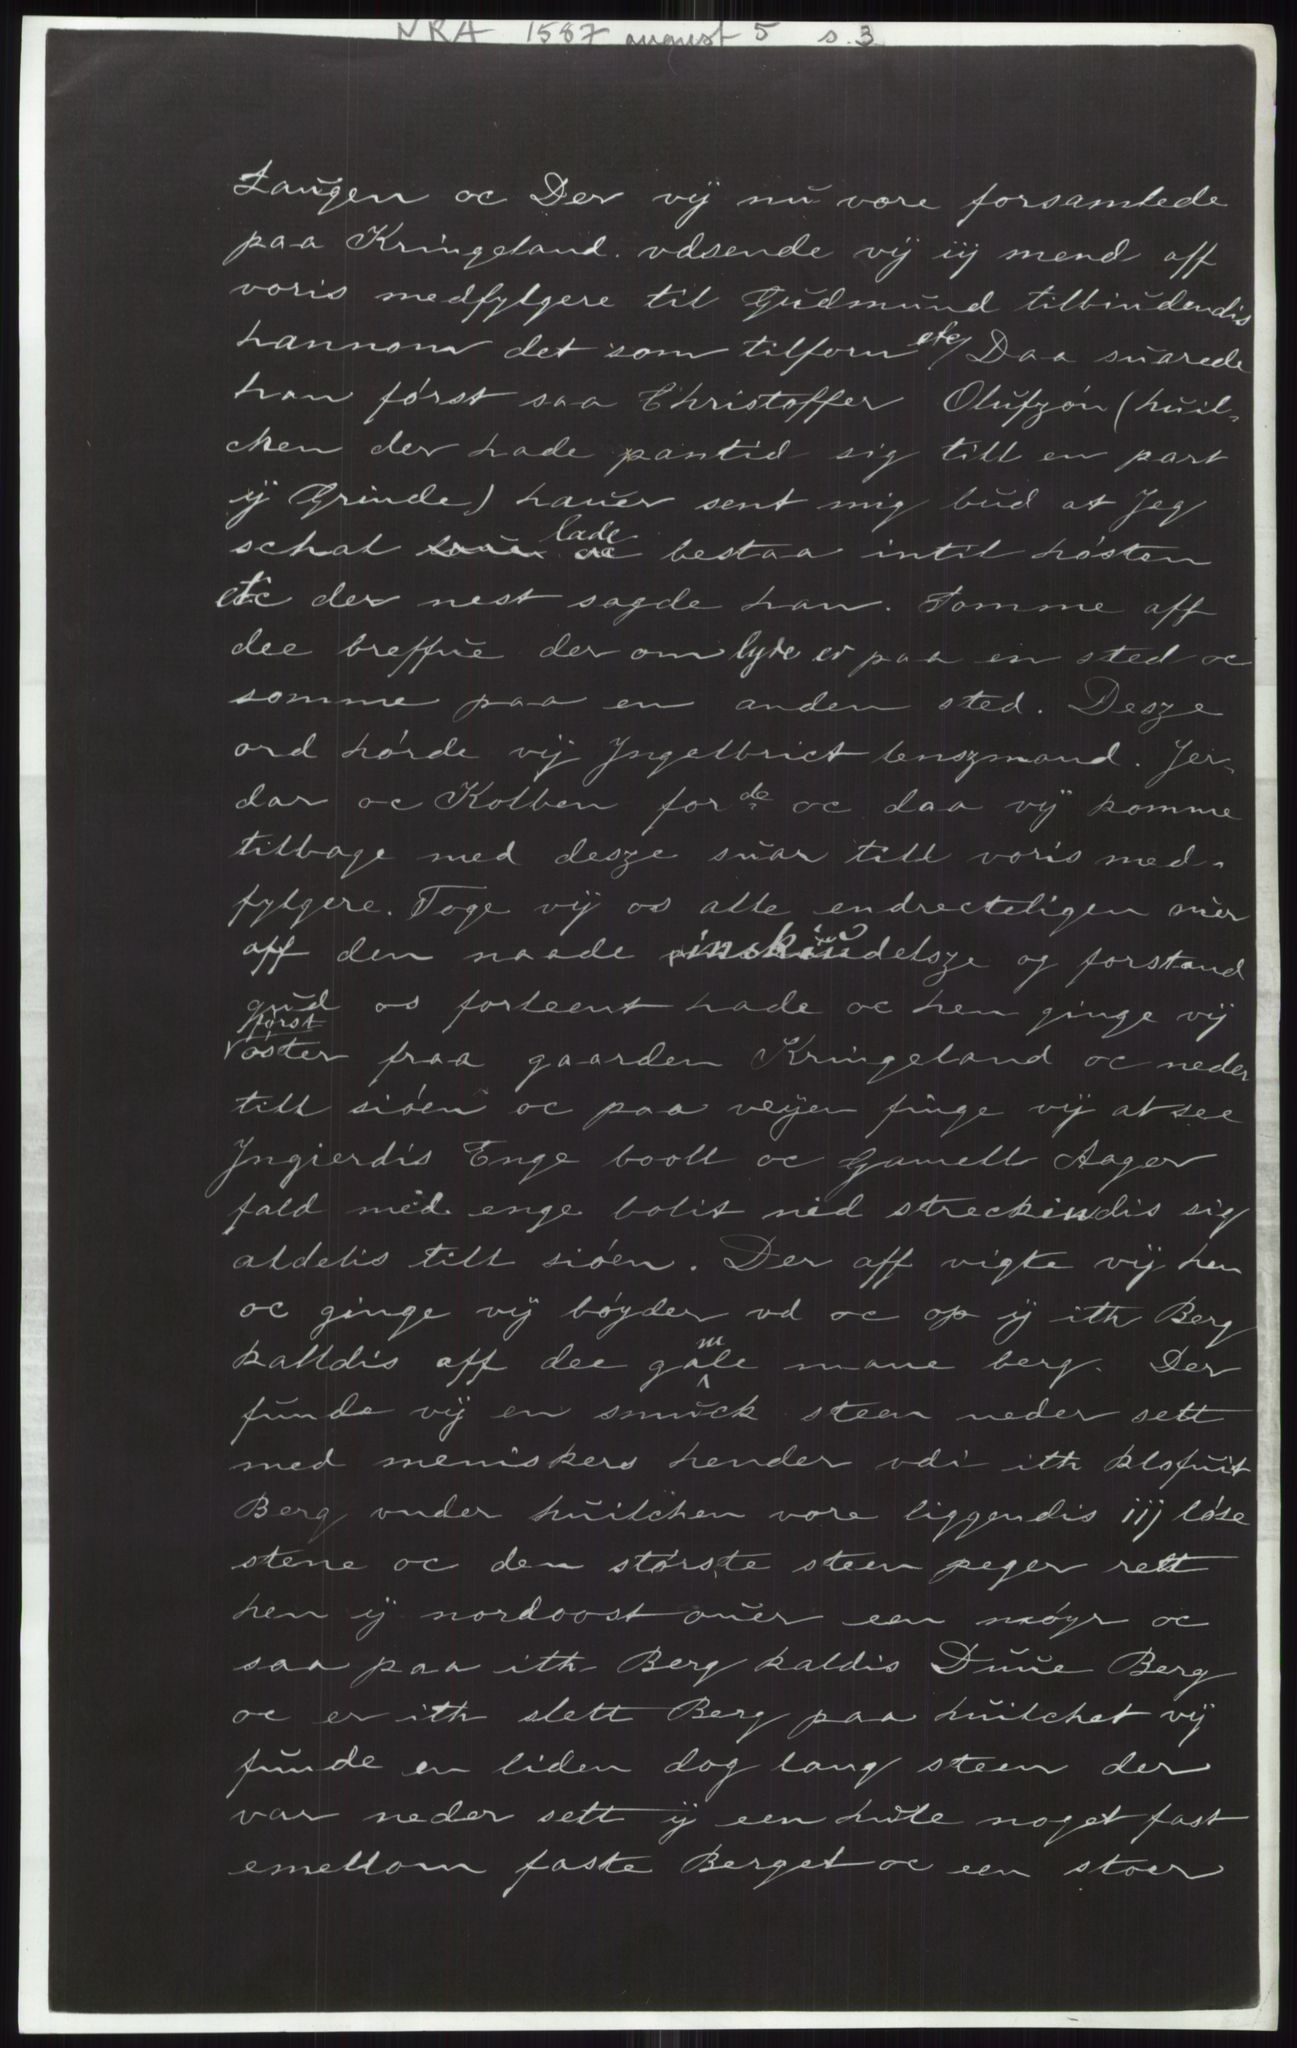 NRA 1587 august 5 s. 3
Laugen oc Der vij nu vore forsamlede
paa Kringeland. vdsende vij iij mend aff
voris medfylgere til Gudmund tilbiudendis
hannom det som tilforn etc/ Daa suarede
han først saa Christoffer Olufzøn (huil-
cken der hade pantid sig till en part
ij Grinde) hauer sent mig bud at Jeg
schal lade bestaa intil høsten
etc der nest sagde han. Somme aff
dee breffue der om lyde er paa en sted oc
somme paa en anden sted. Desze
ord hørde vij Jngelbrict lenszmand. Jer-
dar oc Kolben forde oc daa vij komme
tilbage med desze suar till voris med-
fylgere. Toge vij os alle endrecteligen ouer
aff den naade inskiudelsze og forstand
gud os forleent hade oc hen ginge vij
først
øster fraa gaarden Kringeland oc neder
till siøen oc paa veyen finge vij at see
Jngierdis Enge booll oc Gamell Aager
fald med enge bolit ned streckindis sig
aldelis till siøen. Der aff vigte vij hen
oc ginge vij bøyder vd oc op ij ith Berg
kalldis aff dee gamle mane berg. Der
funde vij en smuck steen neder sett
med meniskers hender vdi ith klofuit
Berg vnder huilchen vore liggendis iij løse
stene oc den største steen peger rett
hen ij nordoost ouer een møyr oc
saa paa ith Berg kaldis Duue Berg
oc er ith slett Berg paa huilchet vij
funde en liden dog lang steen der
var neder sett ij een hule noget fast
emellom faste Berget oc een stoer